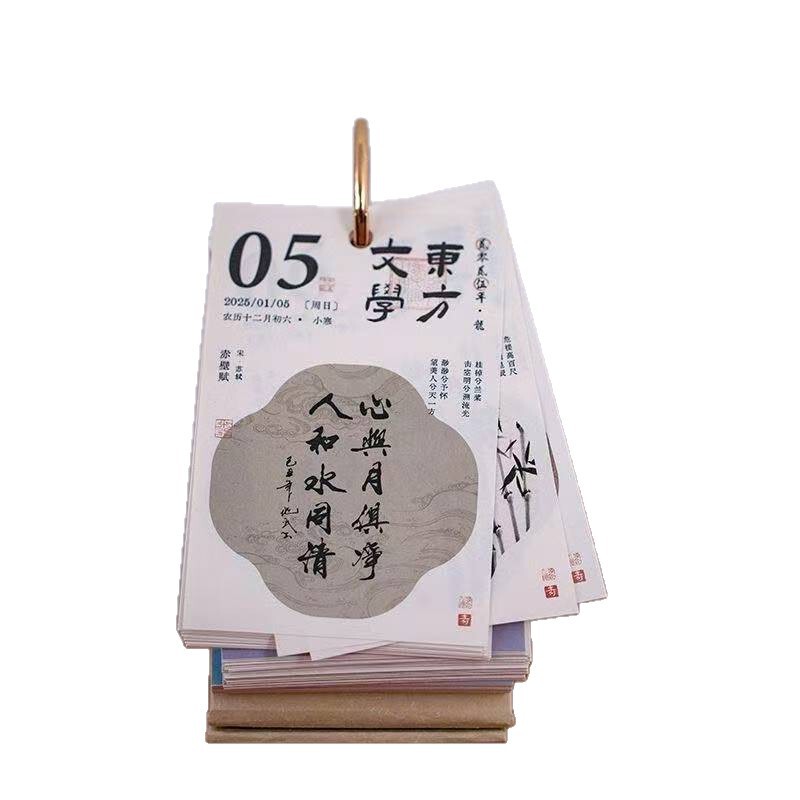 05
2025/01/05 〔周日〕
农历十二月初六 · 小寒
東方
文學
贰零贰伍年 · 龍
宋 · 苏轼
赤壁赋
桂棹兮兰桨
击空明兮溯流光
渺渺兮予怀
望美人兮天一方
心與月俱净
人和水同清
危楼高百尺